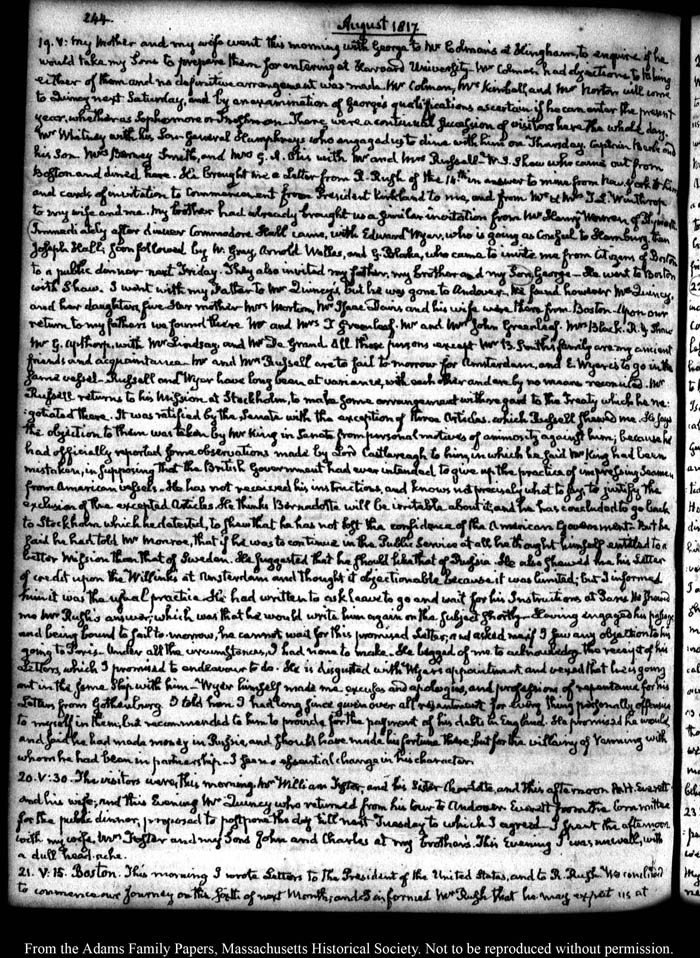 244.
August 1817.
19. V: My Mother and my wife went this morning with George to Mr Colman's at Hingham, to enquire if he
would take my Sons to prepare them for entering at Harvard University. Mr Colman had objections to taking
either of them and no definitive arrangement was made. Mr Colman, Mr Kimball, and Mr Norton will come
to Quincy next Saturday, and by an examination of George's qualifications ascertain if he can enter the present
year, whether as Sophomore or Freshman. There were a continual succession of visitors here the whole day.
Mr Whitney with his Son General Humphreys who engaged us to dine with him on Thursday. Captain and
his Son. Mrs Barney Smith, and Mrs G. A. Otis with Mr and Mrs Russell. W. S. Shaw who came out from
Boston and dined here. He brought me a Letter from R. Rush of the 14th in answer to mine from New York to him
and cards of invitation to Commencement from President Kirkland to me, and from Mr & Mrs T. L. Winthrop
to my wife and me. My brother had already brought us a similar invitation from Mr Henry Warren of Plymouth.
Immediately after dinner Commodore Hull came, with Edward Wyer, who is going as Consul to Hamburg, then
Joseph Hall, soon followed by W. Gray, Arnold Welles, and G. Blake, who came to invite me from Citizens of Boston
to a public dinner next Friday. They also invited my father, my brother and my Son George. He went to Boston
with Shaw. I went with my Father to Mr Quincy's but he was gone to Andover. We found however Mrs Quincy,
and her daughters five. Her mother Mrs Morton, Mr Isaac Davis and his wife were there from Boston. Upon our
return to my father's we found there Mr and Mrs T Greenleaf. Mr and Mrs John Greenleaf. Mrs Black. R. G. Shaw
Mr G. Apthorp, with Mr Lindsay, and Mr De Grand. All these persons except Mr B. Smith's family are my ancient
friends and acquaintance. Mr and Mrs Russell are to sail to morrow for Amsterdam, and E. Wyer is to go in the
same vessel. Russell and Wyer have long been at variance, with each other and are by no means reconciled. Mr
Russell returns to his Mission at Stockholm, to make some arrangement with regard to the Treaty which he ne:
:gotiated there. It was ratified by the Senate with the exception of three Articles, which Russell shewed me. He says
the objection to them was taken by Mr King in Senate from personal motives of animosity against him; because he
had officially reported some observations made by Lord Castlereagh to him, in which he said Mr King had been
mistaken, in supposing that the British Government had ever intended to give up the practice of impressing Seamen,
from American vessels. He has not received his instructions, and knows not precisely what to say, to justify the
exclusion of the excepted Articles. He thinks Bernadotte will be irritable about it, and he has concluded to go back
to Stockholm which he detested, to shew that he has not lost the confidence of the American Government. But he
said he had told Mr Monroe, that if he was to continue in the Public Service at all he thought himself entitled to a
better Mission than that of Sweden. He suggested that he should like that of Russia. He also shewed me his Letter
of credit upon the Willinks at Amsterdam and thought it objectionable because it was limited; but I informed
him it was the usual practice. He had written to ask leave to go and wait for his Instructions at Paris. He shewed
me Mr Rush's answer, which was that he would write him again on the subject shortly. Having engaged his passage
and being bound to sail to-morrow, he cannot wait for this promised Letter, and asked me if I saw any objection to his
going to Paris. Under all the circumstances, I had none to make. He begged of me to acknowledge the receipt of his
Letters, which I promised to endeavour to do. He is disgusted with Wyer's appointment, and vexed that he is going
out in the same Ship with him. Wyer himself made me excuses and apologies, and professions of repentance for his
Letters from Gothenburg. I told him I had long since given over all resentment for every thing personally offensive
to myself in them, but recommended to him to provide for the payment of his debts in England. He promised he would
and said he had made money in Russia, and should have made his fortune there, but for the villainy of with
whom he had been in partnership. I saw no essential change in his character.
20. V:30. The visitors were, this morning, Mr William Foster, and his Sister Charlotte, and this afternoon A. H. Everett
and his wife, and this Evening Mr Quincy who returned from his tour to Andover. Everett from the Committee
for the public dinner, proposed to postpone the day till next Tuesday to which I agreed. I spent the afternoon
with my wife, Mrs Foster and my Sons John and Charles at my brother's. This Evening I was unwell, with
a dull head-ache.
21. V:15. Boston. This morning I wrote Letters to the President of the United States, and to R. Rush. We concluded
to commence our Journey on the of next Month, and I informed Mr Rush that he may expect us at
From the Adams Family Papers, Massachusetts Historical Society. Not to be reproduced without permission.